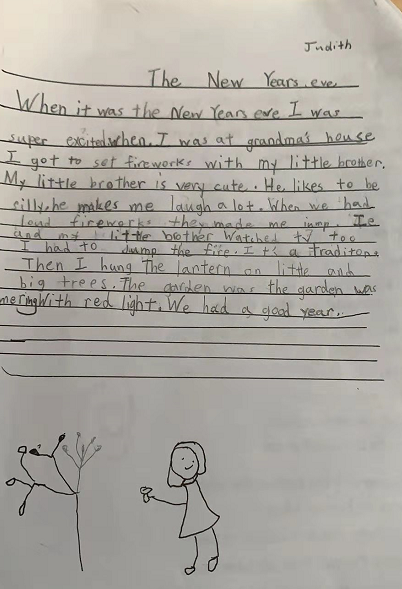 Judith
The New Years eve
When it was the New Years eve I was
super excited.when.I was at grandma's house
I got to set fireworks with my little brother.
My little brother is very cute. He likes to be
silly.he makes me laugh a lot. When we had
loud fireworks they made me jump.
and my little bother watched tv too
I had to jump the fire. It's a traditon.
Then I hung the lantern on little and
big trees. The garden was the garden was
With red light. We had a good year.